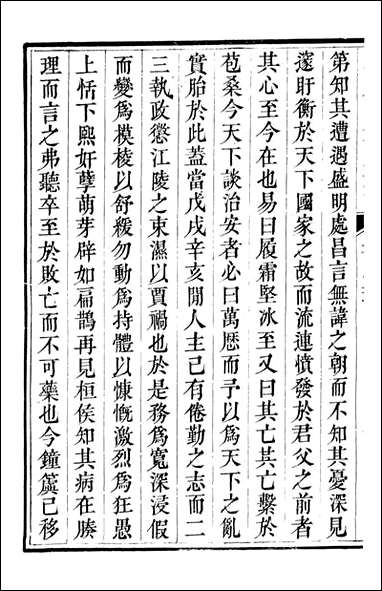 第知其遭遇盛明處昌言無諱之朝而不知其憂深見
邃盱衡於天下國家之故而流連憤發於君父之前者
其心至今在也易曰履霜堅冰至又曰其亡其亡繫於
苞桑今天下談治安者必曰萬厯而予以爲天下之亂
實胎於此蓋當戊戌辛亥閒人主已有倦勤之志而二
三執政懲江陵之束濕以賈禍也於是務爲寬深浸假
而變爲模棱以舒緩勿動爲持體以慷慨激烈爲狂愚
上恬下熙奸孽萌芽辟如扁鵲再見桓侯知其病在腠
理而言之弗聽卒至於敗亡而不可藥也今鐘簴已移